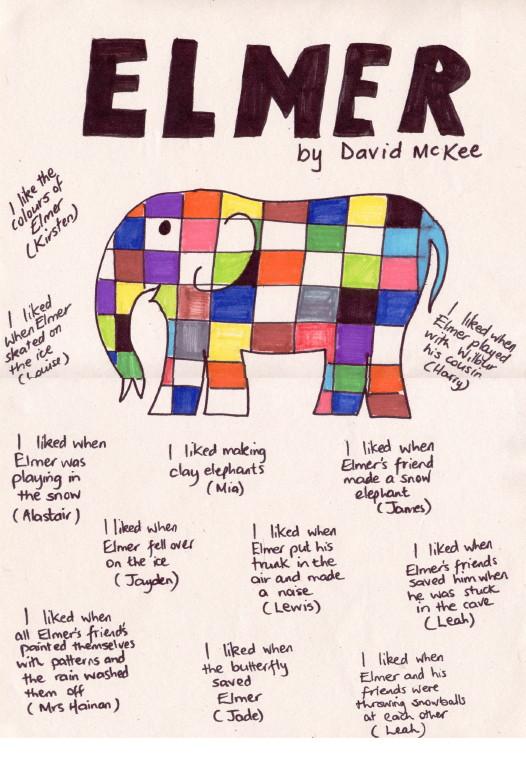 ELMER
by David McKee
I like the
colours of
Elmer
(Kirsten)
I liked
when Elmer
skated on
the ice
(Louise)
I liked when
Elmer played
with Wilbur
his cousin
(Harry)
I liked when
Elmer was
playing in
the snow
(Alastair)
I liked making
clay elephants
(Mia)
I liked when
Elmer's friend
made a snow
elephant
(James)
I liked when
Elmer fell over
on the ice
(Jayden)
I liked when
Elmer put his
trunk in the
air and made
a noise
(Lewis)
I liked when
Elmer's friends
saved him when
he was stuck
in the cave
(Leah)
I liked when
all Elmer's friends
painted themselves
with patterns and
the rain washed
them off
(Mrs Hainan)
I liked when
the butterfly
saved
Elmer
(Jade)
I liked when
Elmer and his
friends were
throwing snowballs
at each other
(Leah)